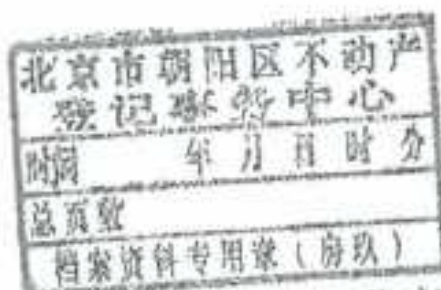 北京市朝阳区不动产
登记事务中心
时间 年 月 日 时 分
总页数
档案资料专用章（房玖）